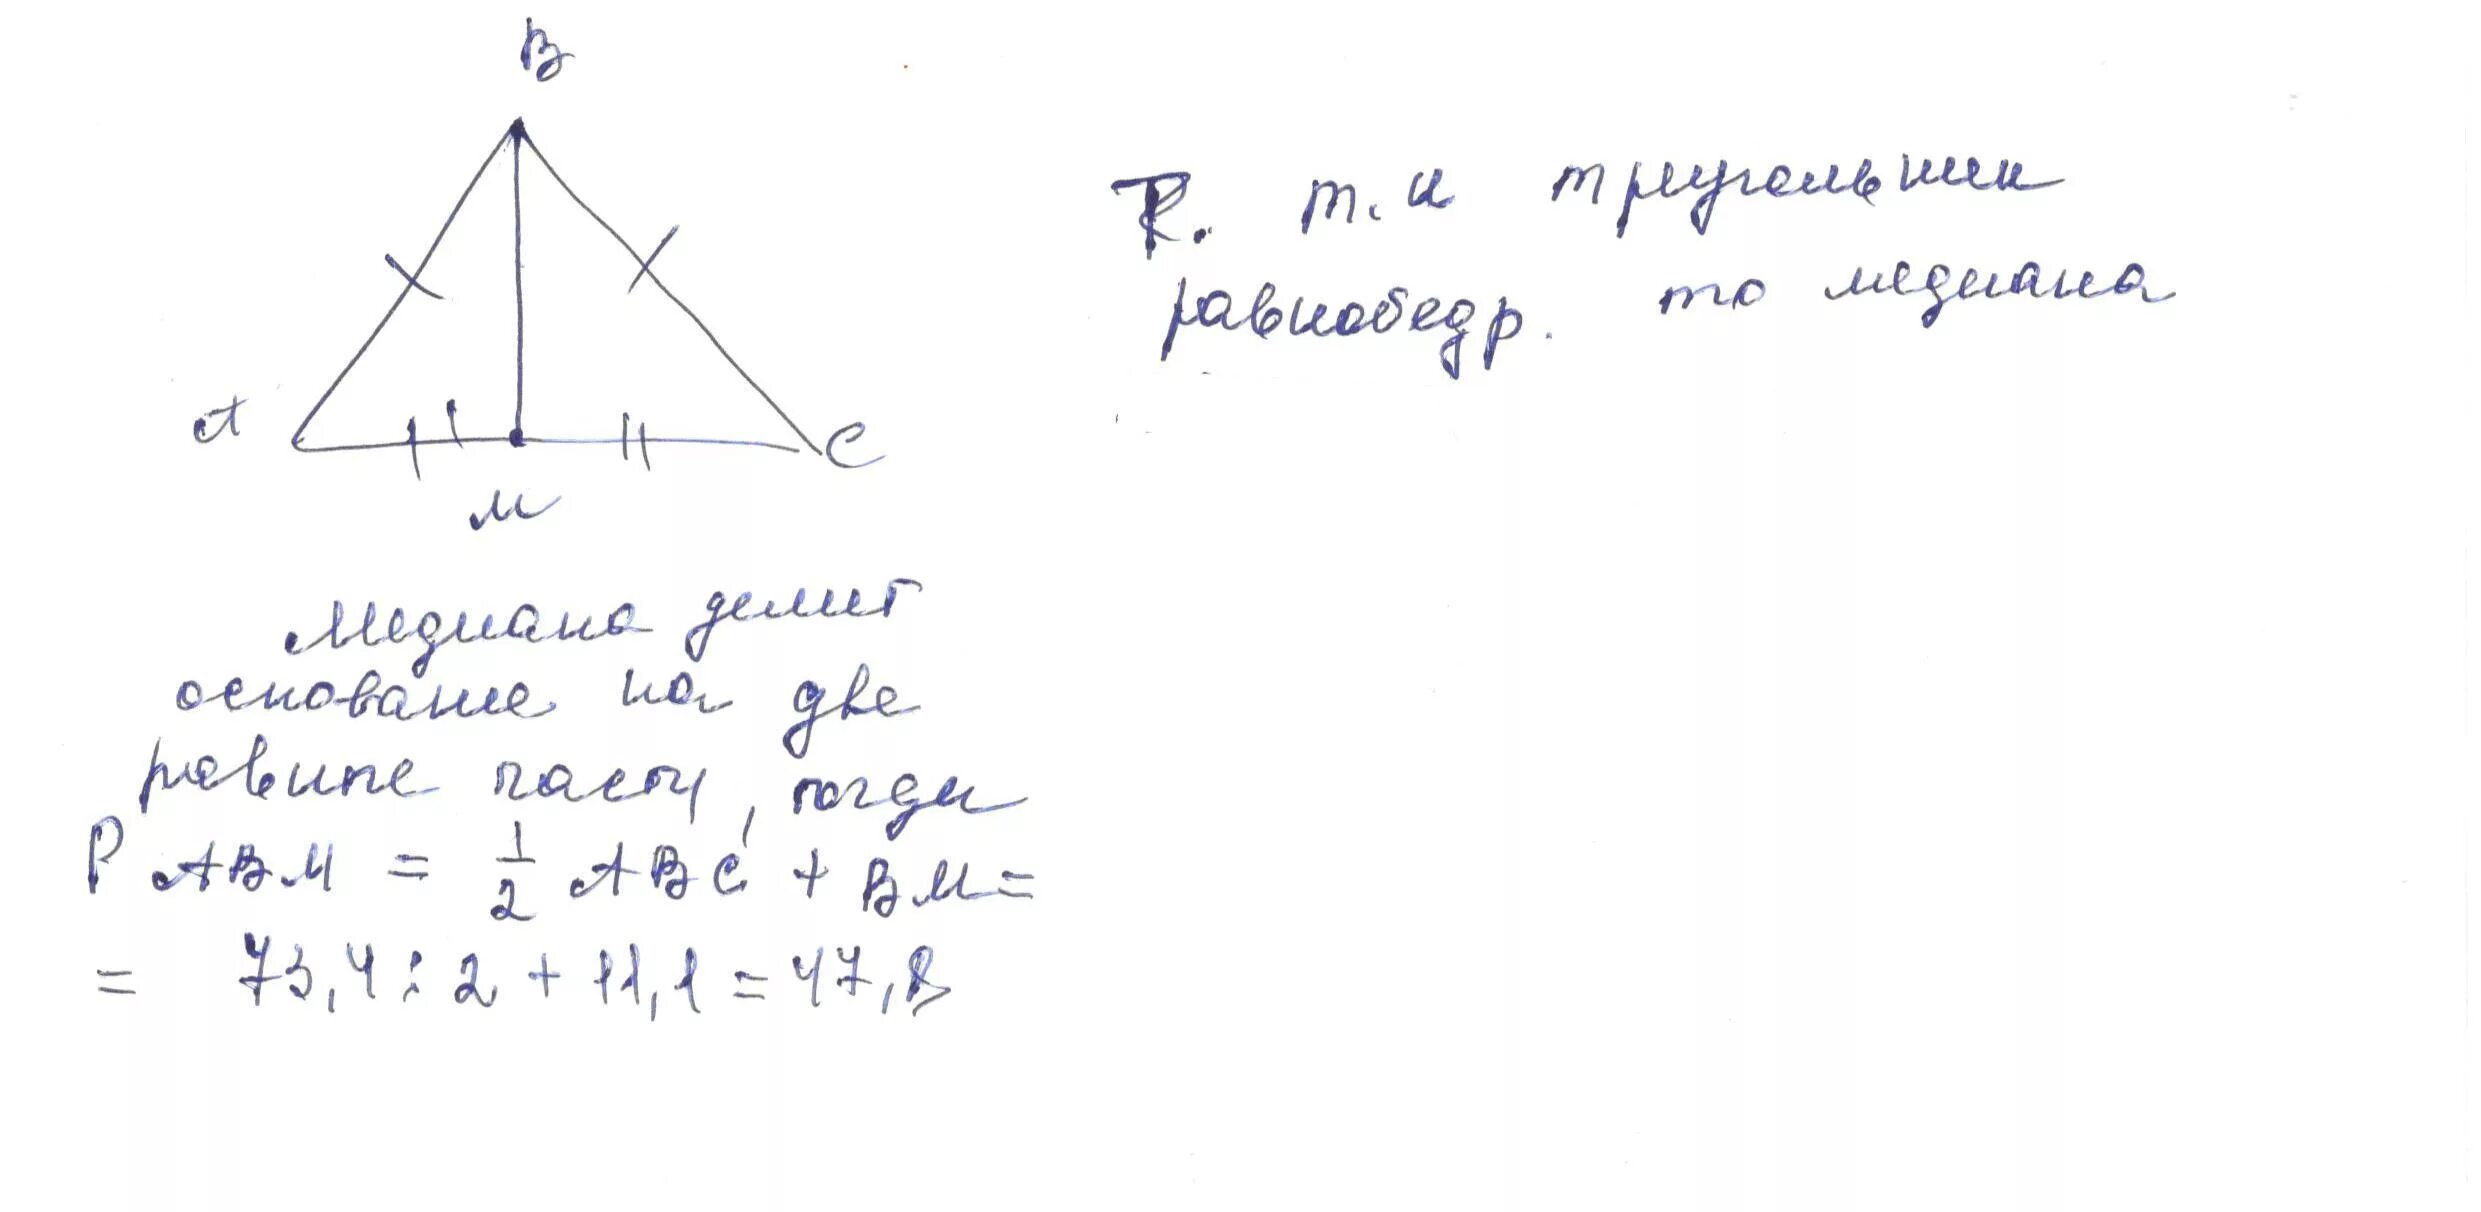 B
A
C
M
т.к треугольник
равнобедр. то медиана
Медиана делит
основание на две
равные части, тогда
P ABM = 1/2 ABC + BM =
= 73,4 : 2 + 11,1 = 47,8